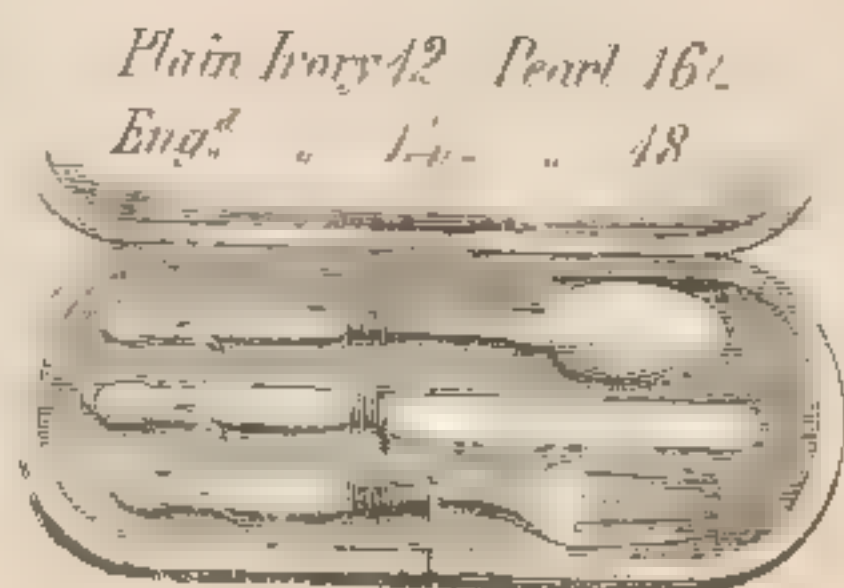 Plain Ivory 12 Pearl 16
Eng.d „ „ 18